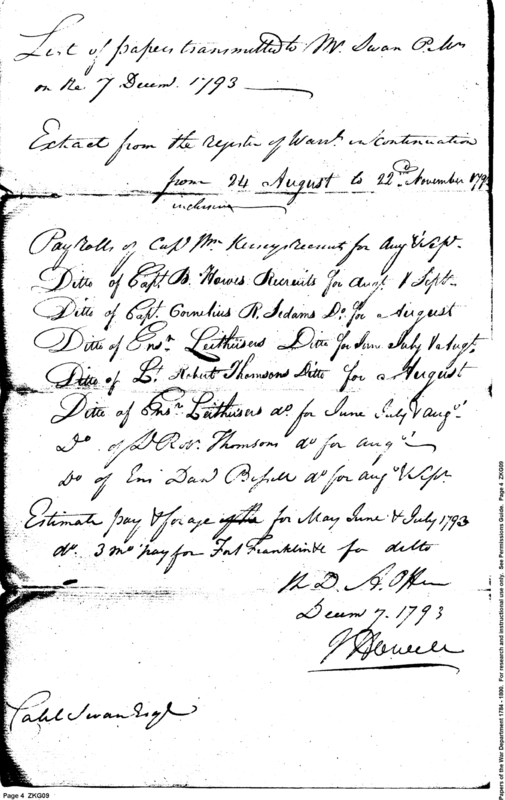 List of papers transmitted to Mr. Swan P. Mr
on the 7 Decem. 1793
Extract from the register of Warrts. in continuation
from 24 August to 22nd. November 179
inclusive
Pay rolls of Capt Wm Kerseys recruits for Augt & Sept.
Ditto of Capt. B. Howes Recruits for augt. & Sept.
Ditto of Capt. Cornelius R. Sedams Do. for August
Ditto of Ensn. Leithusers Ditto for June July & Augt.
Ditto of Lt. Robert Thomsons Ditto for August
Ditto of Ensn. Leithusers do. for June July & augt.
Do of Lt Rot. Thomsons do for augt.
Do of Ens Danl Bissell do for augt & Sept.
Estimate pay & forage for May June & July 1793
do. 3 mo pay for Fort Franklin &c for ditto
W. D. A. Office
Decem 7. 1793
J Howell
Caleb Swan Esqr
Page 4 ZKG09
Papers of the War Department 1784 - 1800. For research and instructional use only. See Permissions Guide. Page 4 ZKG09